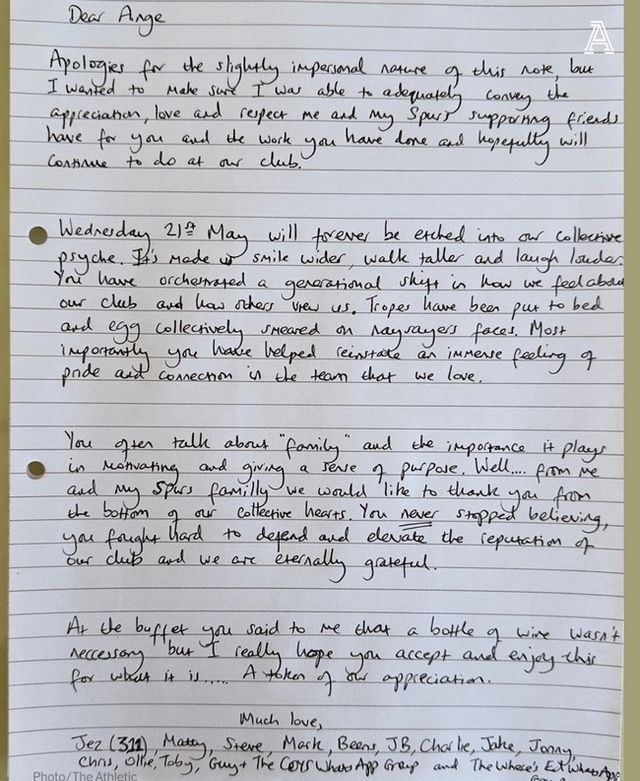 Dear Ange
A
Apologies for the slightly impersonal nature of this note, but
I wanted to make sure I was able to adequately convey the
appreciation, love and respect me and my Spurs supporting friends
have for you and the work you have done and hopefully will
continue to do at our club.
Wednesday 21st May will forever be etched into our collective
psyche. It's made us smile wider, walk taller and laugh louder.
You have orchestrated a generational shift in how we feel about
our club and how others view us. Tropes have been put to bed
and egg collectively smeared on naysayers faces. Most
importantly you have helped reinstate an immense feeling of
pride and connection in the team that we love.
You often talk about "family" and the importance it plays
in motivating and giving a sense of purpose. Well.... from me
and my Spurs familly we would like to thank you from
the bottom of our collective hearts. You never stopped believing,
you fought hard to defend and elevate the reputation of
our club and we are eternally grateful.
At the buffet you said to me that a bottle of wine wasn't
neccessary but I really hope you accept and enjoy this
for what it is..... A token of our appreciation.
Much love,
Jez (311), Matty, Steve, Mark, Beens, JB, Charlie, Jake, Jonny,
Chris, Ollie, Toby, Guy + The COYS WhatsApp Group and The Where's
Photo/The Athletic